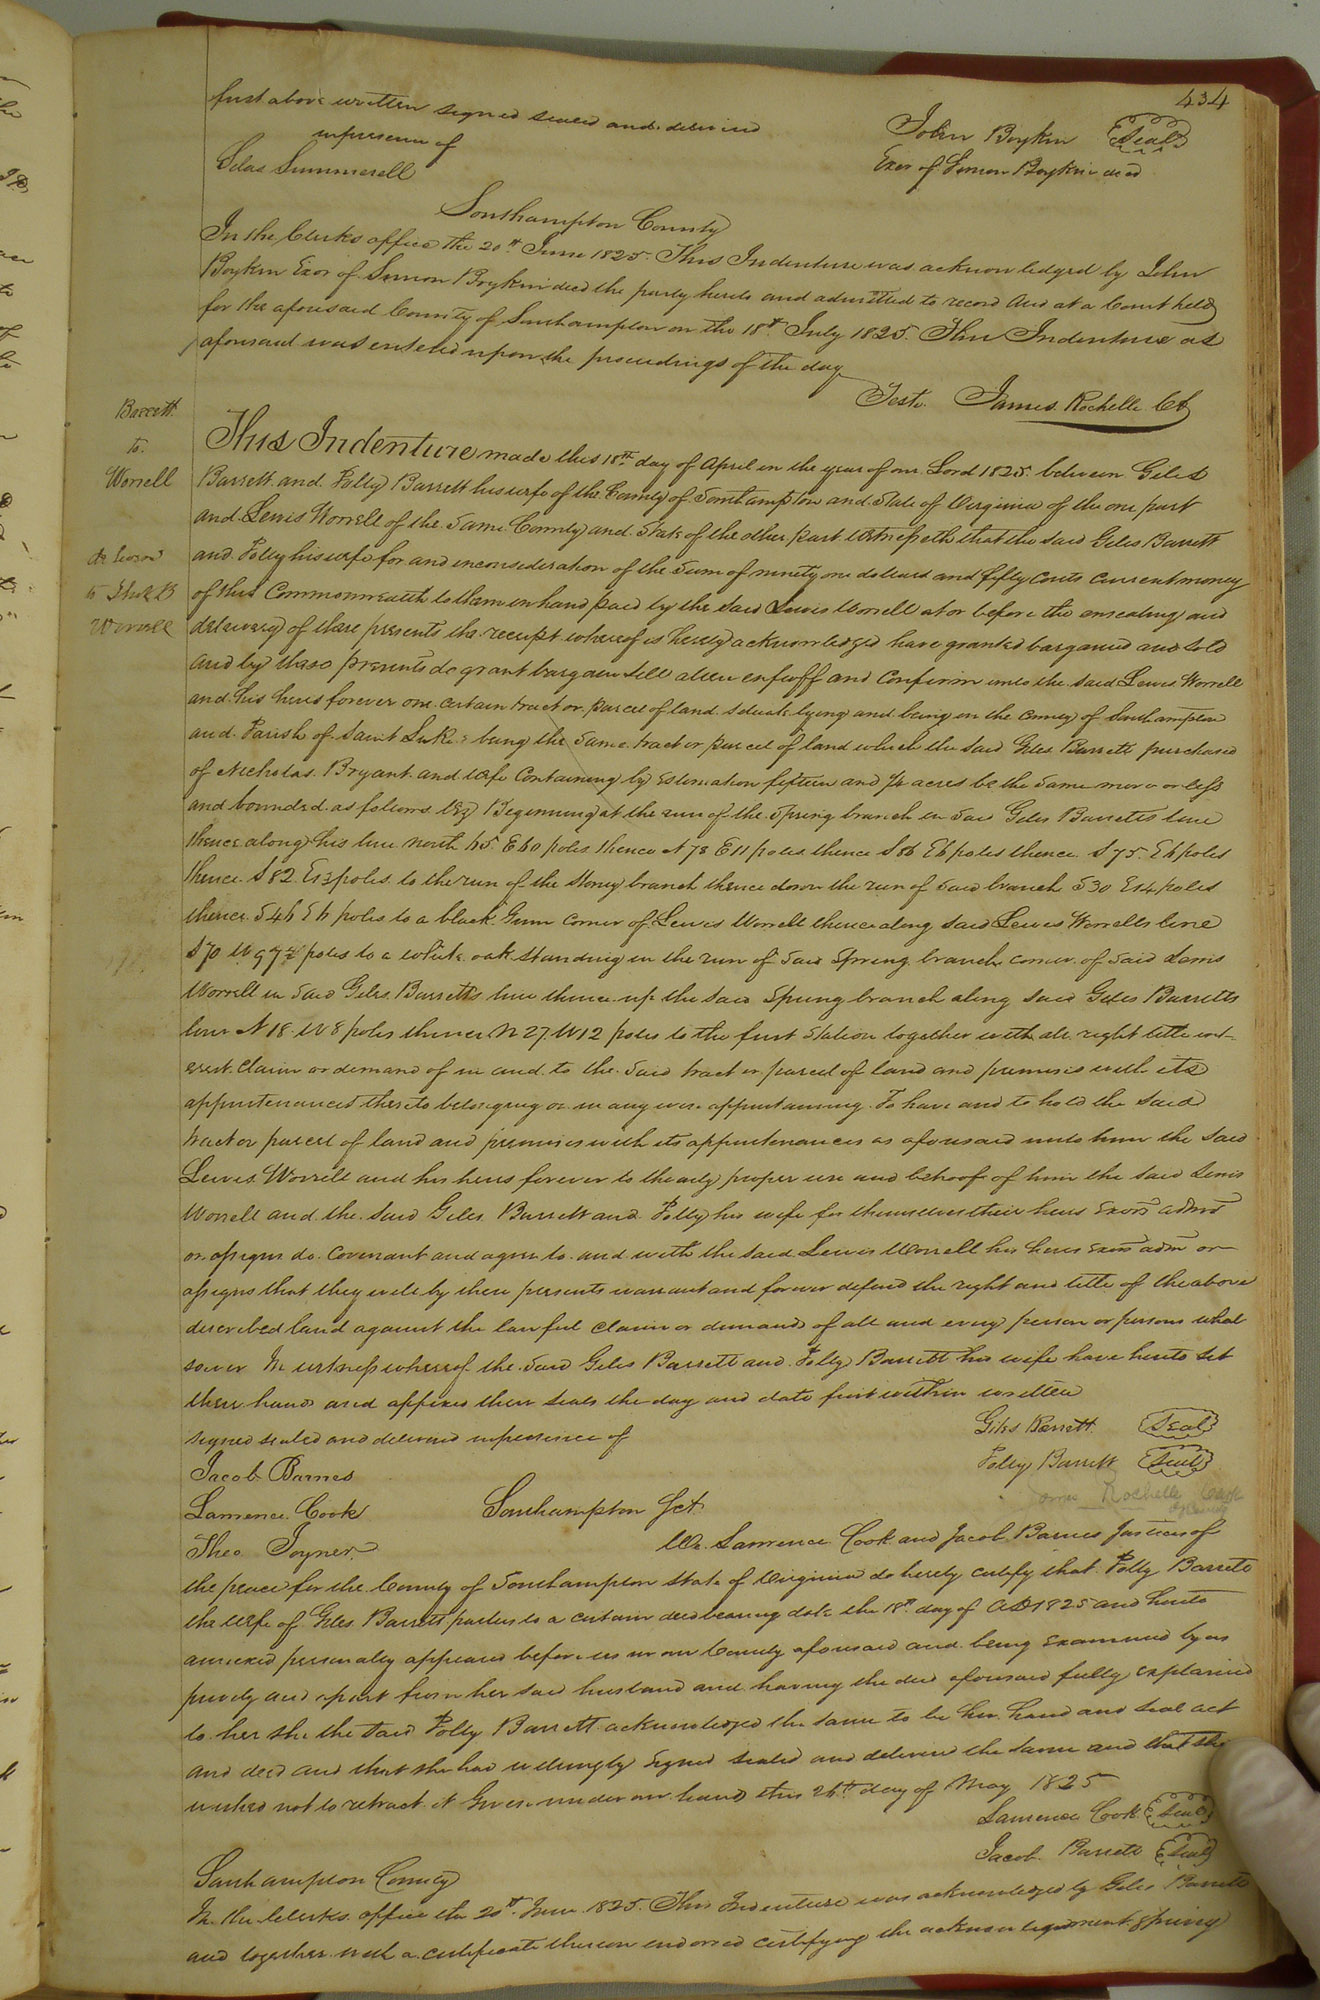 434
first above written signed sealed and delivered
in presence of
John Boykin Seal
Exor of Simon Boykin decd
Silas Summerell
Southampton County
In the Clerks office the 20th June 1825. This Indenture was acknowledged by John
Boykin Exor of Simon Boykin decd the party hereto and admitted to record And at a Court held
for the aforesaid County of Southampton on the 18th July 1825. This Indenture as
aforesaid was entered upon the proceedings of the day
Teste. James Rochelle Ck
Barrett
to
Worrell
to
Worrell
This Indenture made this 18th day of April in the year of our Lord 1825. between Giles
Barrett and Polly Barrett his wife of the County of Southampton and State of Virginia of the one part
and Lewis Worrell of the Same County and State of the other part witnesseth that the said Giles Barrett
and Polly his wife for and in consideration of the Sum of ninety one dollars and fifty Cents current money
of this Commonwealth to them in hand paid by the said Lewis Worrell at or before the ensealing and
delivery of these presents the receipt whereof is hereby acknowledged have granted bargained and sold
and by these presents do grant bargain sell alien enfeoff and Confirm unto the said Lewis Worrell
and his heirs forever one certain tract or parcel of land situate lying and being in the County of Southampton
and Parish of Saint Lukes being the Same tract or parcel of land which the said Giles Barrett purchased
of Nicholas Bryant and wife Containing by estimation fifteen and 1/4 acres be the same more or less
and bounded as follows Viz Beginning at the run of the Spring branch in said Giles Barretts line
thence along his line north 65. E 60 poles thence N 78 E 11 poles thence S 86 E 6 poles thence S 75. E 6 poles
thence S 82. E 13 poles to the run of the Stoney branch thence down the run of said branch S 30 E 14 poles
thence S 46 E 6 poles to a black Gum Corner of Lewis Worrell thence along said Lewis Worrells line
S 70 W 97 1/2 poles to a white oak standing in the run of said Spring branch corner of said Lewis
Worrell in said Giles Barretts line thence up the said Spring branch along said Giles Barretts
line N 18 W 8 poles thence N 27. W 12 poles to the first Station together with all right title int-
erest claim or demand of in and to the said tract or parcel of land and premises with its
appurtenances thereto belonging or in any wise appertaining. To have and to hold the said
tract or parcel of land and premises with its appurtenances as aforesaid unto him the said
Lewis Worrell and his heirs forever to the only proper use and behoof of him the said Lewis
Worrell and the said Giles Barrett and Polly his wife for themselves their heirs Exors admrs
or assigns do Covenant and agree to and with the said Lewis Worrell his heirs Exors adm or
assigns that they will by these presents warrant and forever defend the right and title of the above
described land against the lawful claim or demand of all and every person or persons what
soever In witness whereof the said Giles Barrett and Polly Barrett his wife have hereto set
their hands and affixed their seals the day and date first within written
signed sealed and delivered in presence of
Giles Barrett Seal
Jacob Barnes
Polly Barrett Seal
Lawrence Cook
Theo. Joyner
Southampton Sct.
We Lawrence Cook and Jacob Barnes Justices of
the peace for the County of Southampton State of Virginia do hereby certify that Polly Barrett
the wife of Giles Barrett parties to a certain deed bearing date the 18th day of AD 1825 and hereto
annexed personally appeared before us in our County aforesaid and being examined by us
privily and apart from her said husband and having the deed aforesaid fully explained
to her she the said Polly Barrett acknowledged the same to be her hand and seal act
and deed and that she had willingly signed sealed and delivered the same and that she
wished not to retract it Given under our hands this 26th day of May 1825
Lawrence Cook Seal
Jacob Barrett Seal
Southampton County
In the Clerks office the 20th June 1825. This Indenture was acknowledged by Giles Barrett
and together with a certificate thereon endorsed certifying the acknowledgement & privy